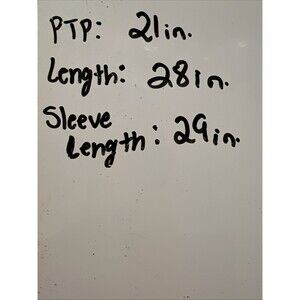 PTP: 21in.
Length: 28in.
Sleeve
Length: 29in.